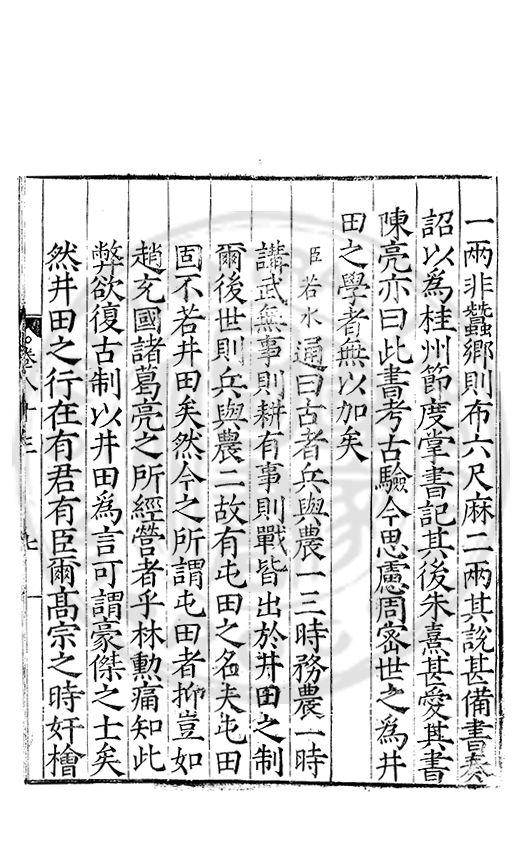 一兩非蠶鄉則布六尺麻二兩其說甚備書奏
詔以為桂州節度掌書記其後朱熹甚愛其書
陳亮亦曰此書考古驗今思慮周密世之為井
田之學者無以加矣
臣若水通曰古者兵與農一三時務農一時
講武無事則耕有事則戰皆出於井田之制
爾後世則兵與農二故有屯田之名夫屯田
固不若井田矣然今之所謂屯田者抑豈如
趙充國諸葛亮之所經營者乎林勳痛知此
弊欲復古制以井田為言可謂豪傑之士矣
然井田之行在有君有臣爾高宗之時奸檜